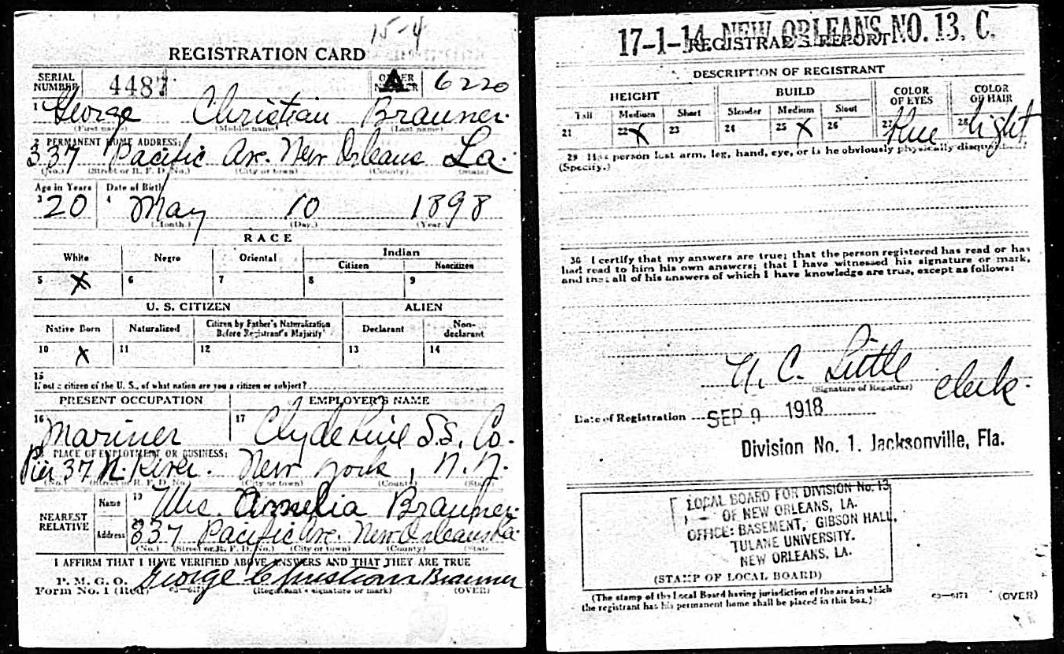 15-4
REGISTRATION CARD
SERIAL NUMBER 4487 ORDER NUMBER A 6220
1 George Christian Brauner
(First name) (Middle name) (Last name)
2 PERMANENT HOME ADDRESS:
337 Pacific Ave. New Orleans La.
(No.) (Street or R. F. D. No.) (City or town) (County) (State)
Age in Years Date of Birth
3 20 4 May 10 1898
(Month.) (Day.) (Year.)
RACE
White Negro Oriental Indian
Citizen Noncitizen
5 X 6 7 8 9
U. S. CITIZEN ALIEN
Native Born Naturalized Citizen by Father's Naturalization Before Registrant's Majority Declarant Non-declarant
10 X 11 12 13 14
15
If not a citizen of the U. S., of what nation are you a citizen or subject?
PRESENT OCCUPATION EMPLOYER'S NAME
16 Mariner 17 Clyde Line S.S. Co.
18 PLACE OF EMPLOYMENT OR BUSINESS:
Pier 37 N. River. New York, N.Y.
(No.) (Street or R. F. D. No.) (City or town) (County) (State)
NEAREST RELATIVE
Name 19 Mrs. Amelia Brauner
Address 20 337 Pacific Ave. New Orleans La.
(No.) (Street or R. F. D. No.) (City or town) (County) (State)
I AFFIRM THAT I HAVE VERIFIED ABOVE ANSWERS AND THAT THEY ARE TRUE
P. M. G. O.
Form No. 1 (Red) 03-6171 George Christian Brauner
(Registrant's signature or mark) (OVER)
17-1-14 NEW ORLEANS, NO. 13, C.
REGISTRAR'S REPORT
DESCRIPTION OF REGISTRANT
HEIGHT BUILD COLOR OF EYES COLOR OF HAIR
Tall Medium Short Slender Medium Stout
21 22 X 23 24 25 X 26 27 Blue 28 Light
29 Has person lost arm, leg, hand, eye, or is he obviously physically disqualified?
(Specify.)
30 I certify that my answers are true; that the person registered has read or has
had read to him his own answers; that I have witnessed his signature or mark,
and that all of his answers of which I have knowledge are true, except as follows:
C. Little
(Signature of Registrar) clerk.
Date of Registration SEP 9 1918
Division No. 1. Jacksonville, Fla.
LOCAL BOARD FOR DIVISION No. 13
OF NEW ORLEANS, LA.
OFFICE: BASEMENT, GIBSON HALL,
TULANE UNIVERSITY.
NEW ORLEANS, LA.
(STAMP OF LOCAL BOARD)
(The stamp of the Local Board having jurisdiction of the area in which
the registrant has his permanent home shall be placed in this box.) 03-6171 (OVER)